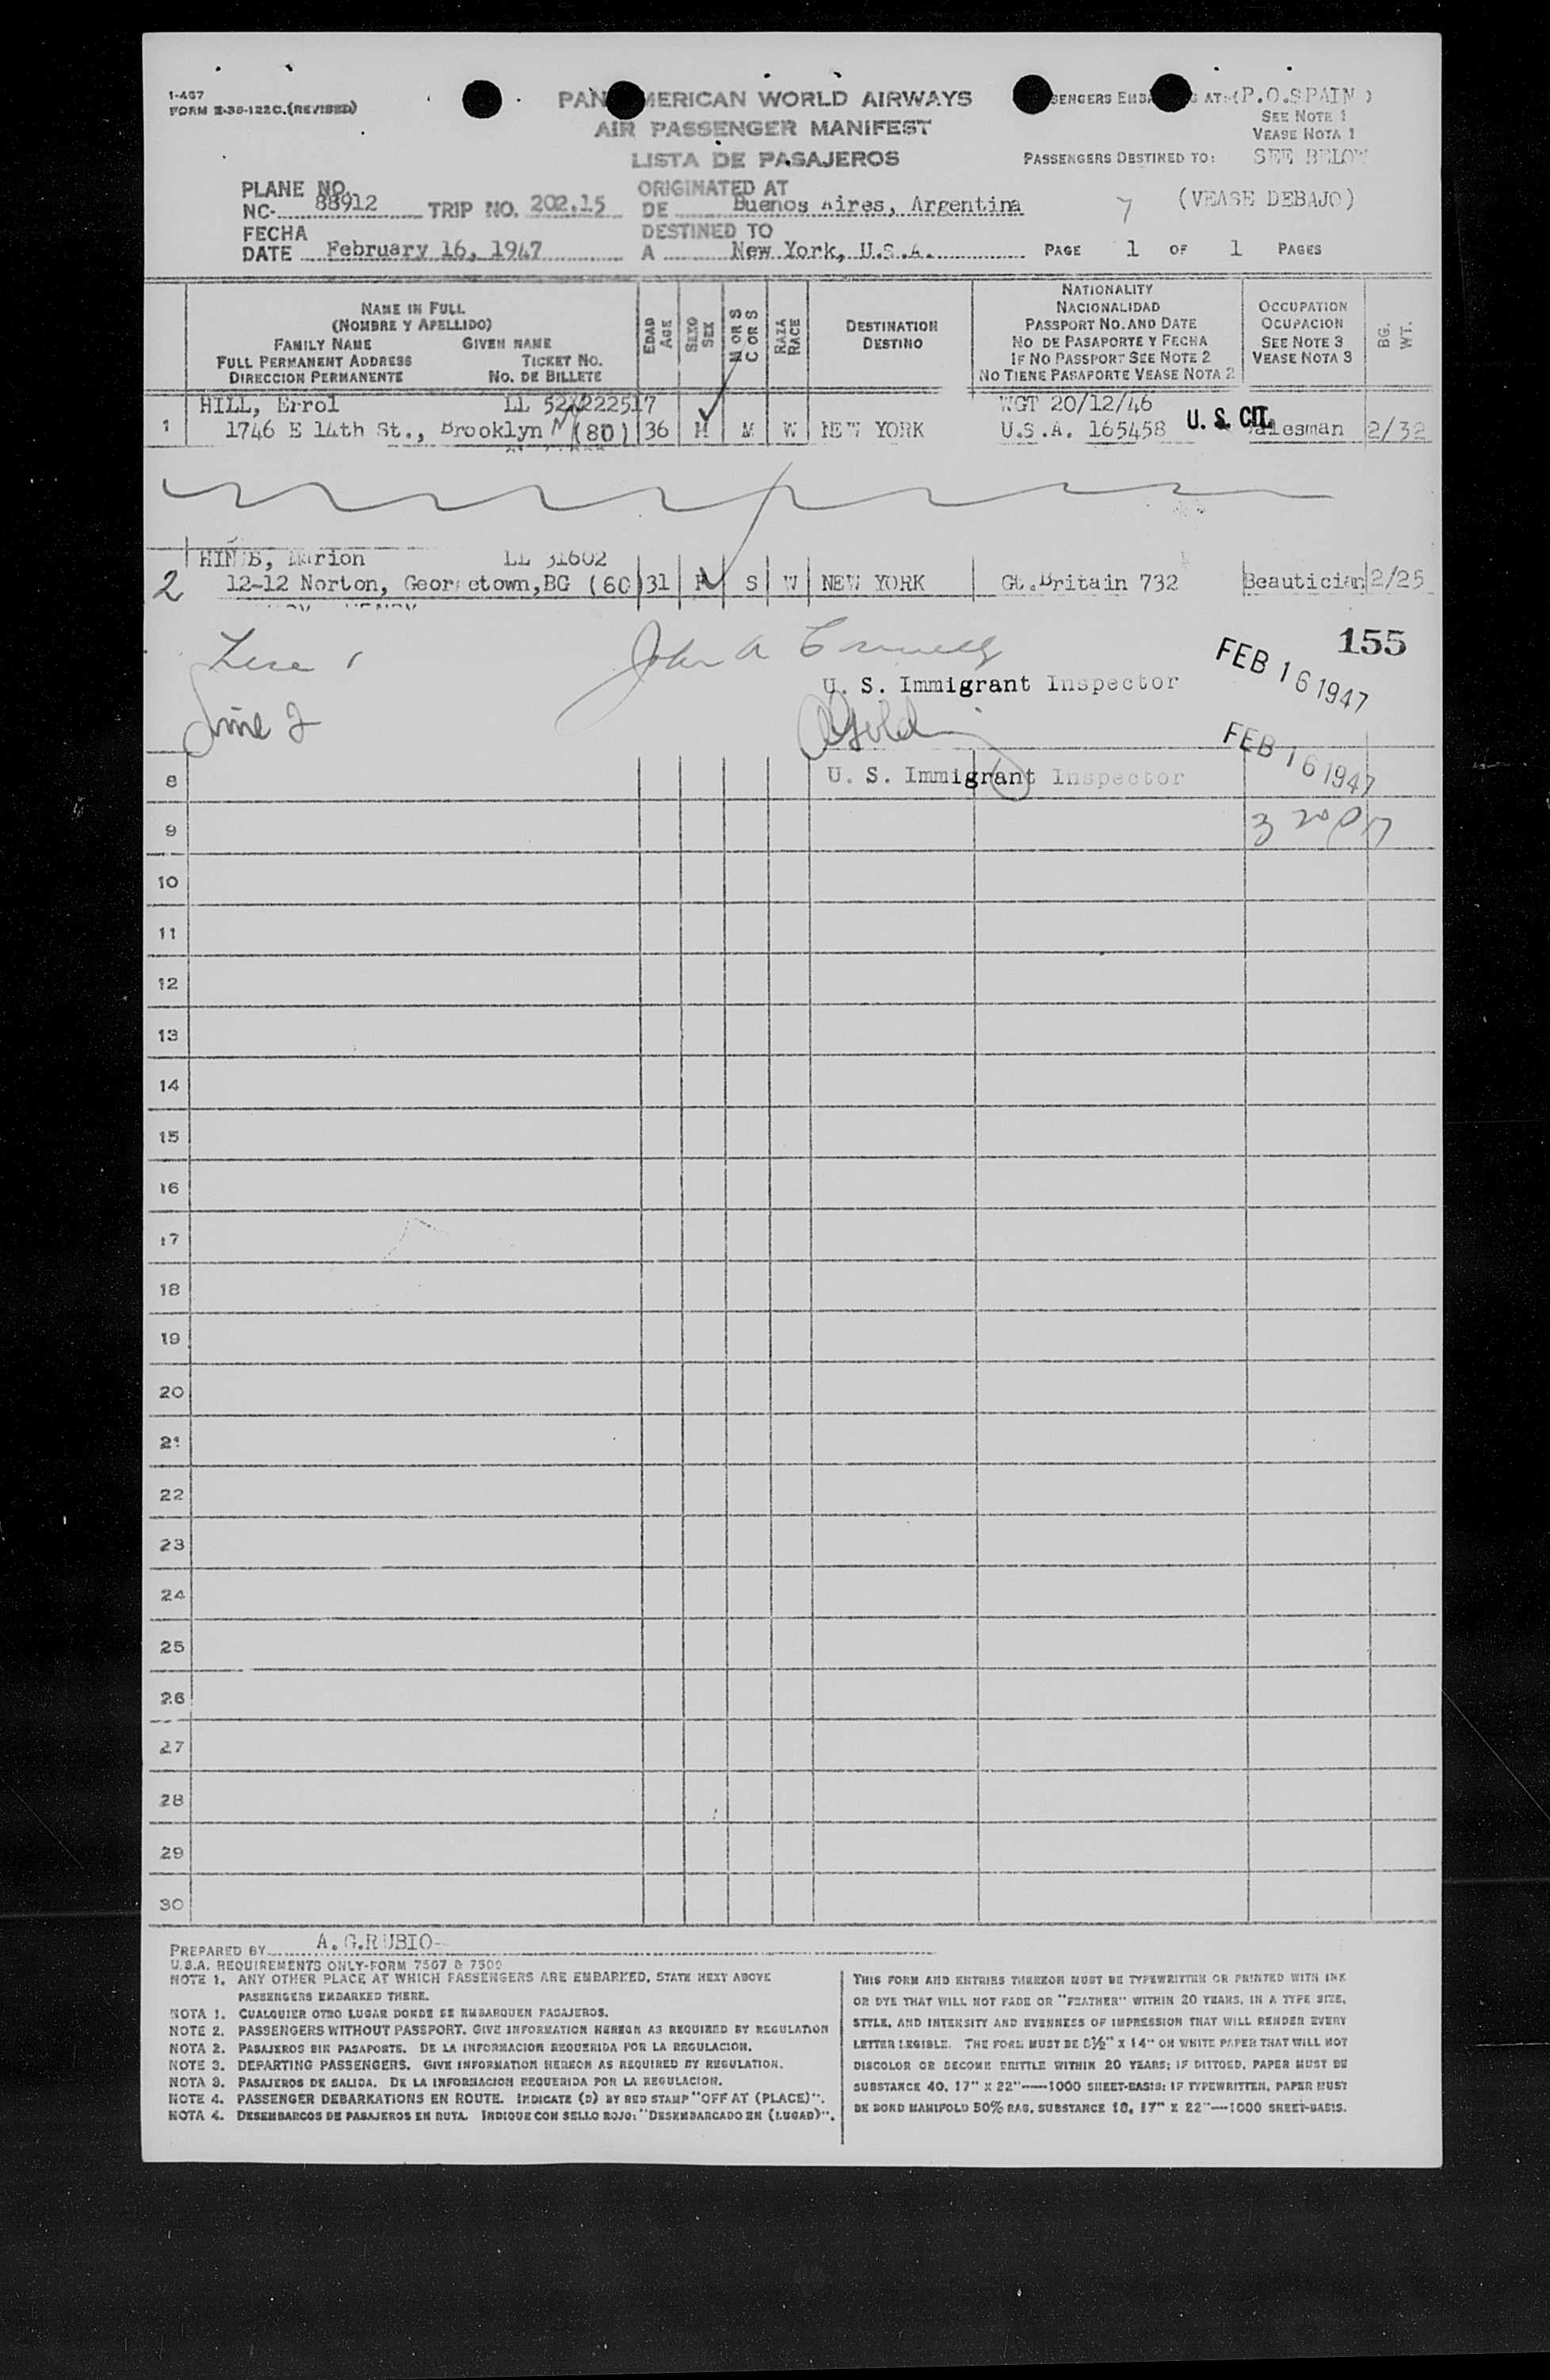 1-467
FORM E-38-122C.(REVISED)
PAN AMERICAN WORLD AIRWAYS
AIR PASSENGER MANIFEST
LISTA DE PASAJEROS
AT:(P.O.SPAIN )
SEE NOTE 1
VEASE NOTA 1
PASSENGERS DESTINED TO: SEE BELOW
(VEASE DEBAJO)
7
PLANE NO.
NC- 88912 TRIP NO. 202.15
ORIGINATED AT
DE Buenos Aires, Argentina
FECHA
DATE February 16, 1947
DESTINED TO
A New York, U.S.A.
PAGE 1 OF 1 PAGES
NAME IN FULL
(NOMBRE Y APELLIDO)
FAMILY NAME GIVEN NAME
FULL PERMANENT ADDRESS TICKET NO.
DIRECCION PERMANENTE NO. DE BILLETE
EDAD
AGE
SEXO
SEX
M OR S
C OR S
RAZA
RACE
DESTINATION
DESTINO
NATIONALITY
NACIONALIDAD
PASSPORT NO. AND DATE
NO DE PASAPORTE Y FECHA
IF NO PASSPORT SEE NOTE 2
NO TIENE PASAPORTE VEASE NOTA 2
OCCUPATION
OCUPACION
SEE NOTE 3
VEASE NOTA 3
BG.
WT.
HILL, Errol LL WGT 20/12/46
1 1746 E 14th St., Brooklyn (80) 36 M M W NEW YORK U.S.A. 165458 U. S. CIT. Salesman 2/32
Marion LL 31602
2 12-12 Norton, Georgetown,BG (60) 31 F S W NEW YORK Gt.Britain 732 Beautician 2/25
155
John A
U. S. Immigrant Inspector
FEB 16 1947
line 2
FEB 16 1947
8 U. S. Immigrant Inspector
9 3 20 PM
10
11
12
13
14
15
16
17
18
19
20
21
22
23
24
25
26
27
28
29
30
PREPARED BY A.G.RUBIO
U.S.A. REQUIREMENTS ONLY-FORM 7507 & 7509
NOTE 1. ANY OTHER PLACE AT WHICH PASSENGERS ARE EMBARKED, STATE NEXT ABOVE
PASSENGERS EMBARKED THERE.
NOTA 1. CUALQUIER OTRO LUGAR DONDE SE EMBARQUEN PASAJEROS.
NOTE 2. PASSENGERS WITHOUT PASSPORT. GIVE INFORMATION HEREON AS REQUIRED BY REGULATION
NOTA 2. PASAJEROS SIN PASAPORTE. DE LA INFORMACION REQUERIDA POR LA REGULACION.
NOTE 3. DEPARTING PASSENGERS. GIVE INFORMATION HEREON AS REQUIRED BY REGULATION.
NOTA 3. PASAJEROS DE SALIDA. DE LA INFORMACION REQUERIDA POR LA REGULACION.
NOTE 4. PASSENGER DEBARKATIONS EN ROUTE. INDICATE (D) BY RED STAMP "OFF AT (PLACE)".
NOTA 4. DESEMBARCOS DE PASAJEROS EN RUTA. INDIQUE CON SELLO ROJO: "DESEMBARCADO EN (LUGAR)".
THIS FORM AND ENTRIES THEREON MUST BE TYPEWRITTEN OR PRINTED WITH INK
OR DYE THAT WILL NOT FADE OR "FEATHER" WITHIN 20 YEARS, IN A TYPE SIZE,
STYLE, AND INTENSITY AND EVENNESS OF IMPRESSION THAT WILL RENDER EVERY
LETTER LEGIBLE. THE FORM MUST BE 8½" X 14" ON WHITE PAPER THAT WILL NOT
DISCOLOR OR BECOME BRITTLE WITHIN 20 YEARS; IF DITTOED, PAPER MUST BE
SUBSTANCE 40, 17" X 22"—1000 SHEET-BASIS; IF TYPEWRITTEN, PAPER MUST
BE BOND MANIFOLD 50% RAG, SUBSTANCE 18, 17" X 22"—1000 SHEET-BASIS.